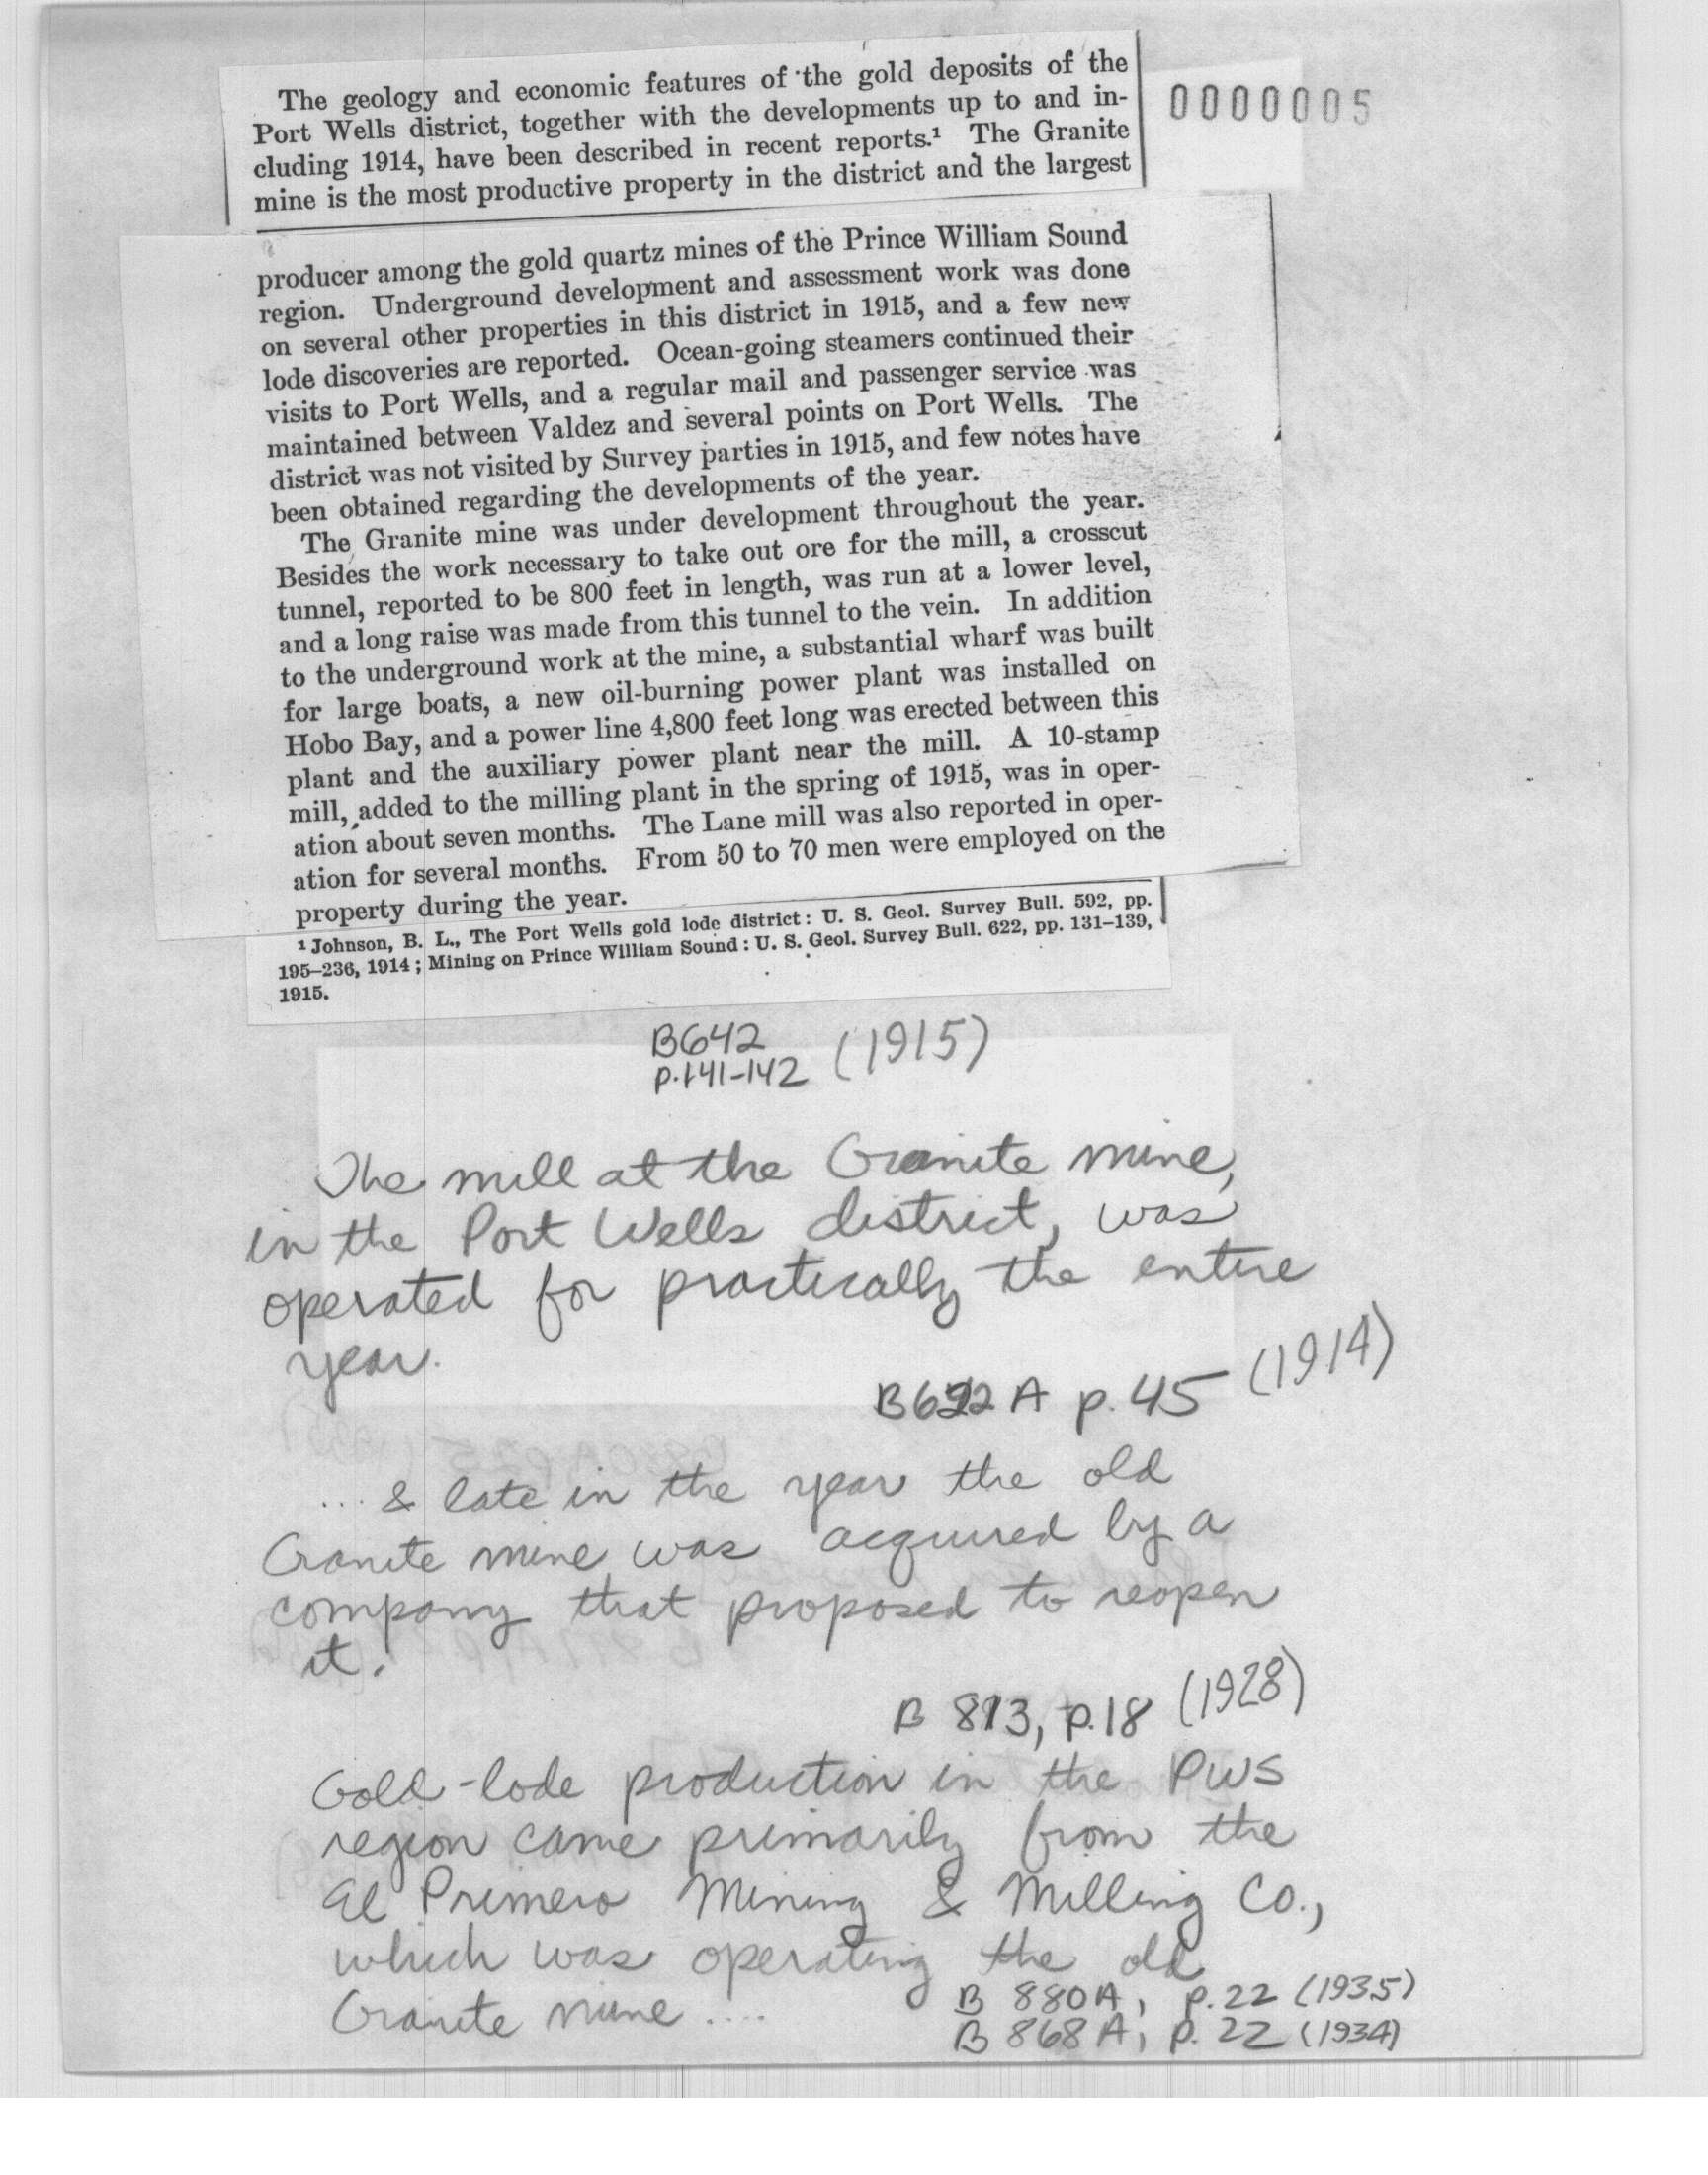 The geology and economic features of the gold deposits of the
Port Wells district, together with the developments up to and in-
cluding 1914, have been described in recent reports.¹ The Granite
mine is the most productive property in the district and the largest
0000005
producer among the gold quartz mines of the Prince William Sound
region. Underground development and assessment work was done
on several other properties in this district in 1915, and a few new
lode discoveries are reported. Ocean-going steamers continued their
visits to Port Wells, and a regular mail and passenger service was
maintained between Valdez and several points on Port Wells. The
district was not visited by Survey parties in 1915, and few notes have
been obtained regarding the developments of the year.
The Granite mine was under development throughout the year.
Besides the work necessary to take out ore for the mill, a crosscut
tunnel, reported to be 800 feet in length, was run at a lower level,
and a long raise was made from this tunnel to the vein. In addition
to the underground work at the mine, a substantial wharf was built
for large boats, a new oil-burning power plant was installed on
Hobo Bay, and a power line 4,800 feet long was erected between this
plant and the auxiliary power plant near the mill. A 10-stamp
mill, added to the milling plant in the spring of 1915, was in oper-
ation about seven months. The Lane mill was also reported in oper-
ation for several months. From 50 to 70 men were employed on the
property during the year.
¹ Johnson, B. L., The Port Wells gold lode district: U. S. Geol. Survey Bull. 592, pp.
195–236, 1914; Mining on Prince William Sound: U. S. Geol. Survey Bull. 622, pp. 131–139,
1915.
B642 (1915)
p.141-142
The mill at the Granite mine,
in the Port Wells district, was
operated for practically the entire
year.
B622 A p. 45 (1914)
... & late in the year the old
Granite mine was acquired by a
company that proposed to reopen
it.
B 813, p.18 (1928)
Gold-lode production in the PWS
region came primarily from the
El Primero Mining & Milling Co.,
which was operating the old
Granite mine ....
B 880A, p.22 (1935)
B 868A, p. 22 (1934)